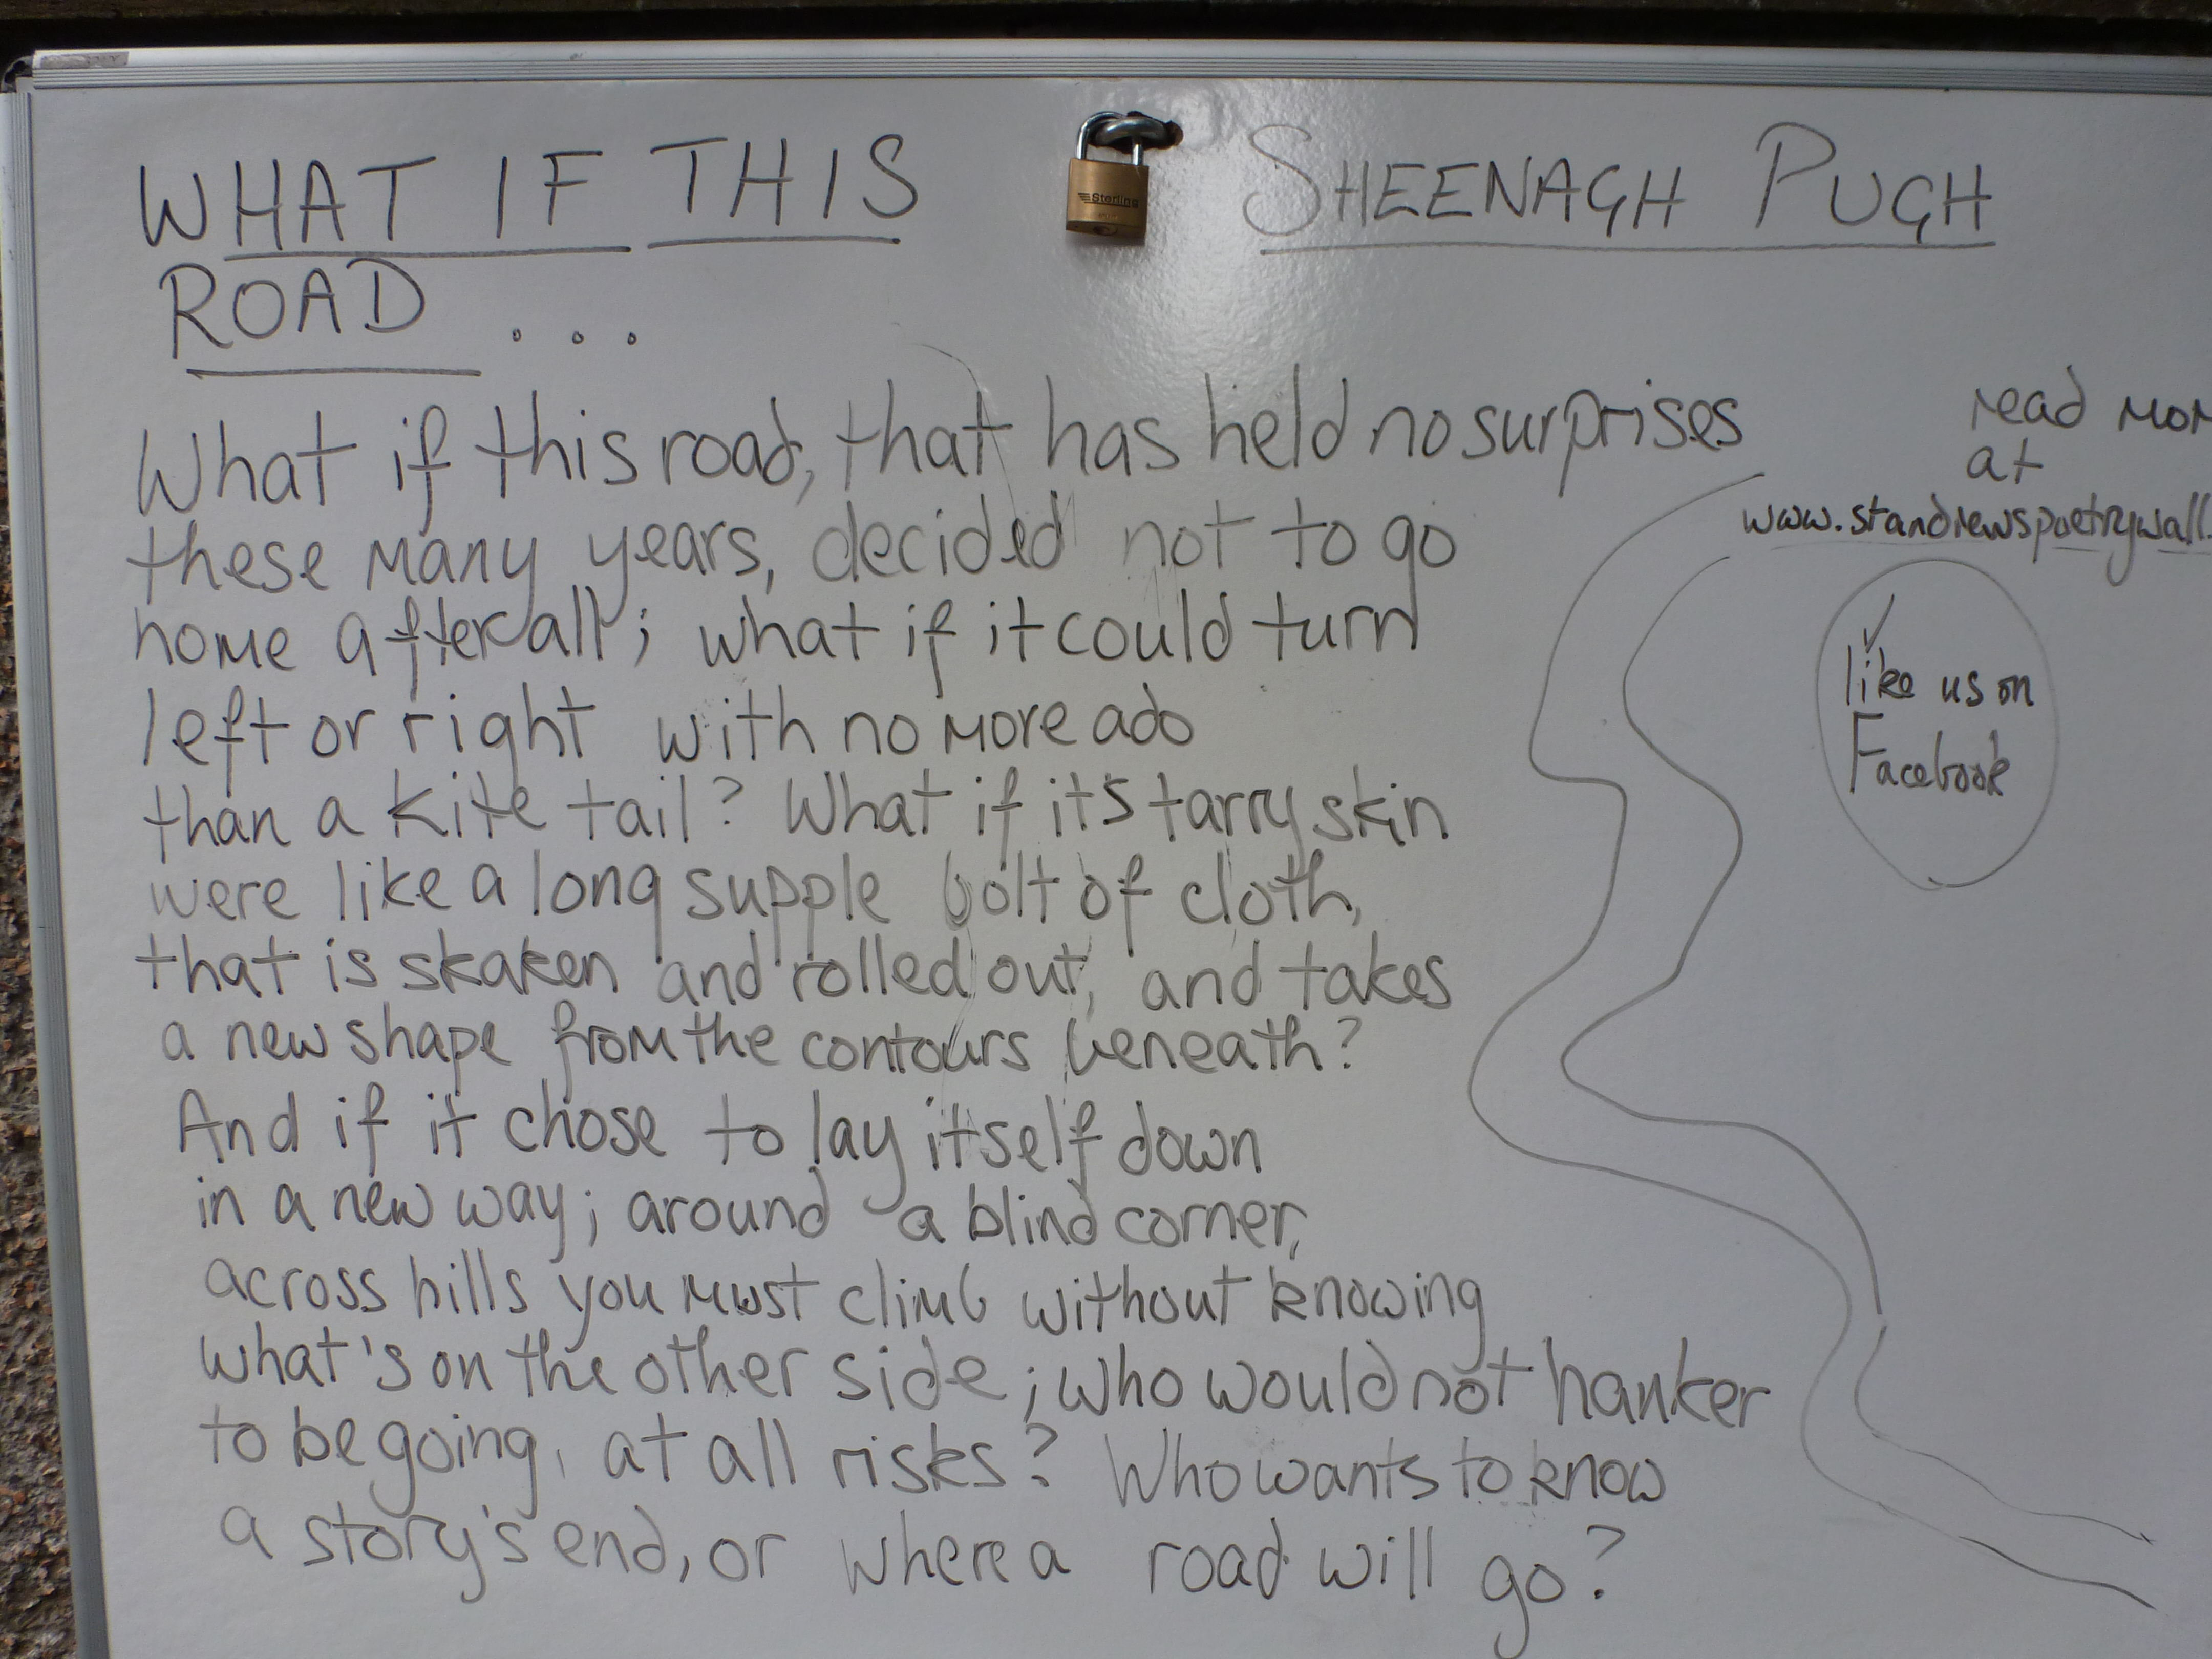 WHAT IF THIS
ROAD ...
SHEENAGH PUGH
Sterling
What if this road, that has held no surprises
these many years, decided not to go
home after all; what if it could turn
left or right with no more ado
than a kite tail? What if its tarry skin
were like a long supple bolt of cloth,
that is skaken and rolled out, and takes
a new shape from the contours beneath?
And if it chose to lay itself down
in a new way; around a blind corner,
across hills you must climb without knowing
what's on the other side; who would not hanker
to be going, at all risks? Who wants to know
a story's end, or where a road will go?
read mor
at
www.standrewspoetrywall.
like us on
Facebook